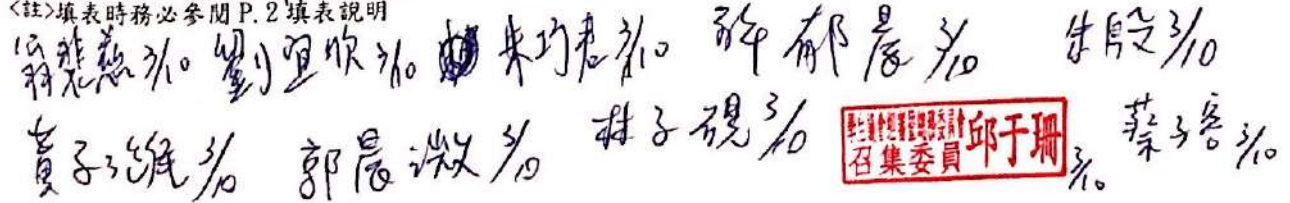 <註>填表時務必參閱 P.2 填表說明
翁裴慈 3/10 劉宜欣 3/10 朱巧君 3/10 許郁晨 3/10 朱殷 3/10
黃子維 3/10 郭宸漵 3/10 林子硯 3/10 召集委員 邱于珊 3/10 蔡子容 3/10